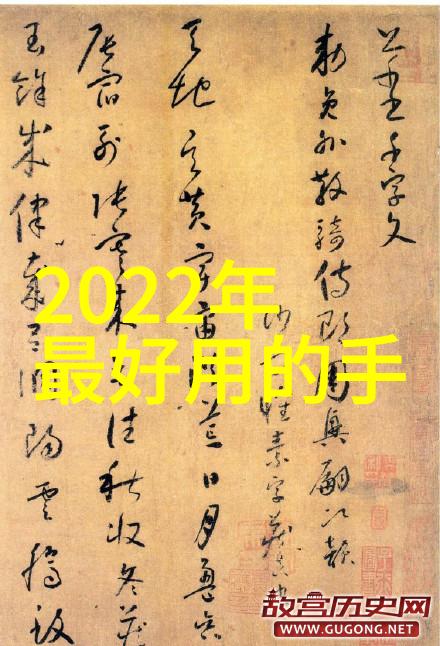 千字文
勅員外散騎侍郎周興嗣次韻
沙門懷素字藏真
天地玄黃宇宙洪荒日月盈昃
辰宿列張寒來往秋收冬藏
閏餘成律歲呂調陽雲騰致
2022年
最好用的手
故宫历史网
WWW.GUGONG.NET